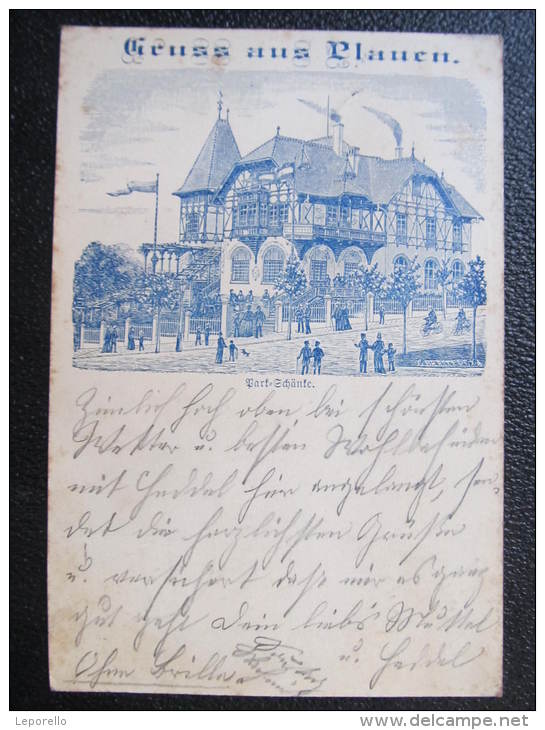 Gruss aus Plauen.
Park-Schänke.
Ziemlich hoch oben bei schönsten
Wetter u. besten Wohlbefinden
mit Heddel hier angelangt, sen-
det die herzlichsten Grüße
u. versichert daß mir es ganz
gut geht Dein liebs Muttel
u. Heddel
Ohne Brille
Leporello
www.delcampe.net